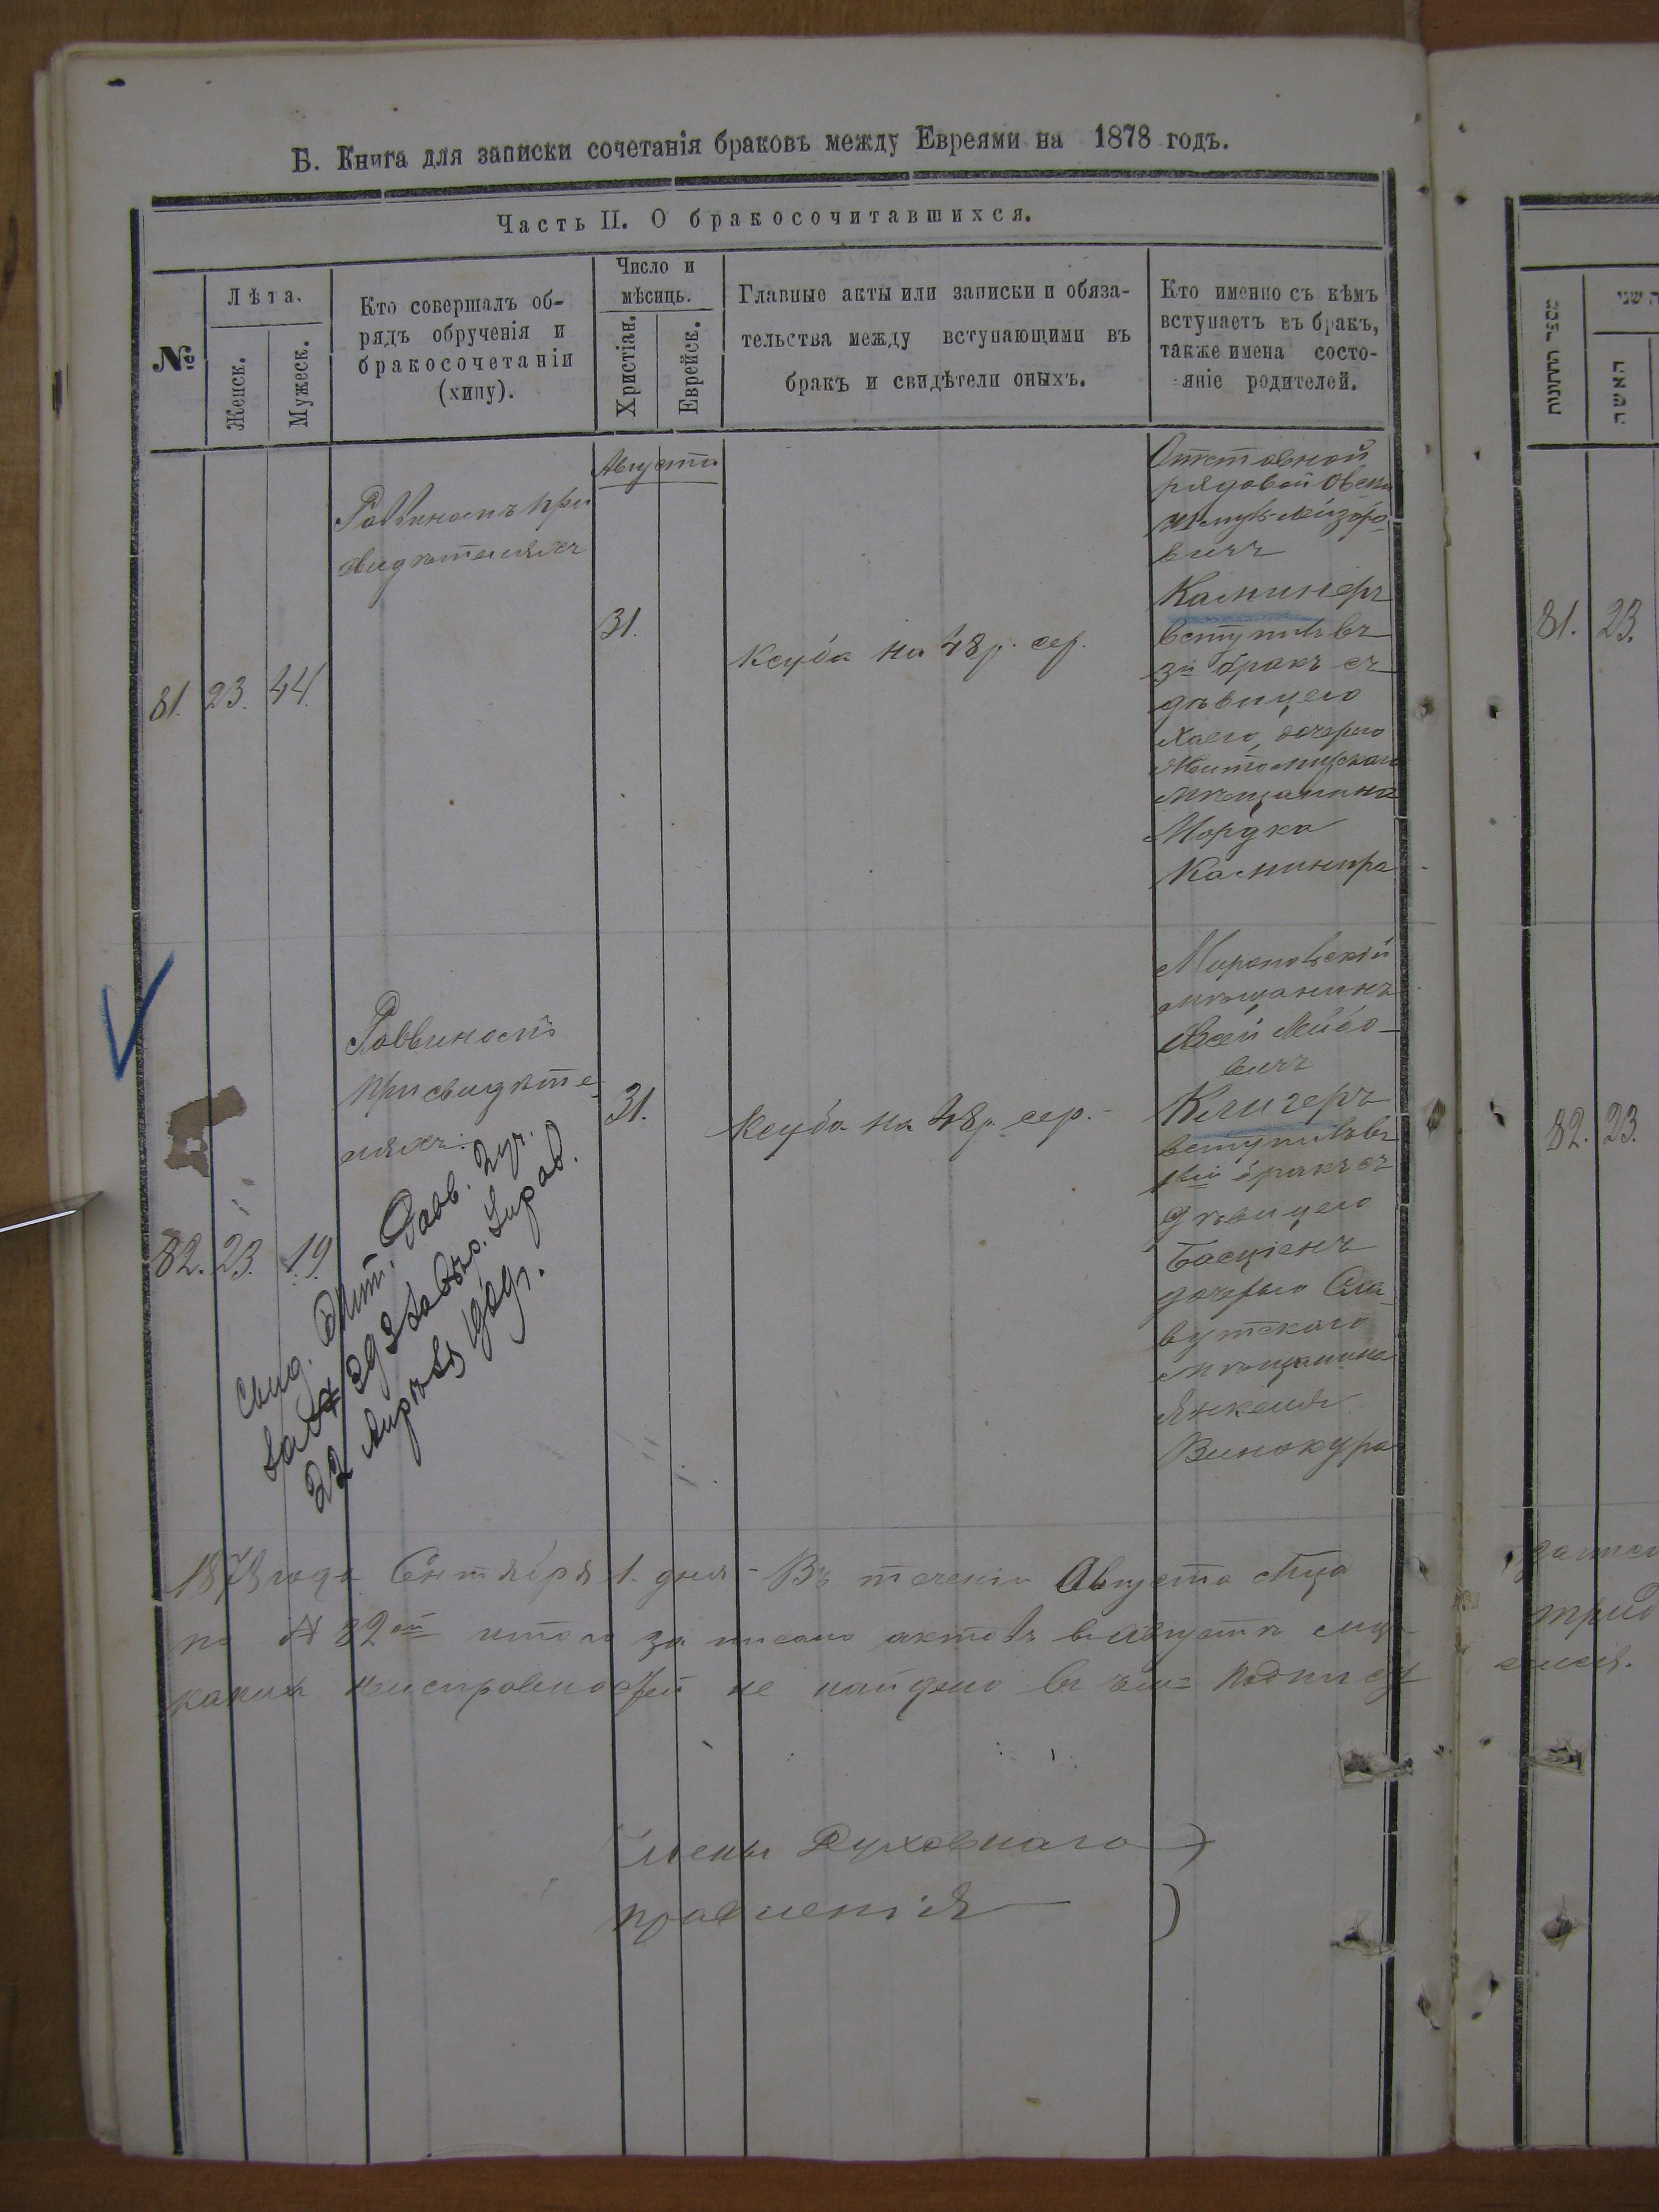 Б. Книга для записки сочетанія браковъ между Евреями на 1878 годъ.
Часть II. О бракосочитавшихся.
№
Лѣта.
Женск.
Мужеск.
Кто совершалъ об-
рядъ обрученія и
бракосочетаніи
(хипу).
Число и
мѣсяць.
Христіан.
Еврейск.
Главные акты или записки и обяза-
тельства между вступающими въ
бракъ и свидѣтели оныхъ.
Кто именно съ кѣмъ
вступаетъ въ бракъ,
также имена состо-
яніе родителей.
81. 23. 44.
Раввиномъ при
свидѣтеляхъ
Августа
31.
Ксуба на 48 р. сер.
Отставной
рядовой
Лейзоро-
вичъ
Каминеръ
вступилъ въ
3й бракъ съ
дѣвицею
Хаею дочерью
Житомирскаго
мѣщанина
Мордка
Каминира
82. 23. 19.
Раввиномъ
при свидѣте-
ляхъ.
31.
Ксуба на 48 р. сер.
Миропольскій
мѣщанинъ
Лейбо-
вичъ
Клигеръ
вступилъ въ
1вый бракъ съ
дѣвицею
Басціенъ
дочерью Сла-
вутскаго
мѣщанина
Янкеля
Винокура
Свид. Жит. Равв.
22 Апрѣля 1909г.
1878 года Сентября 1. дня - Въ теченіи Августа мца
по № 82ой итого записано актовъ въ Августѣ мцѣ
какихъ неисправностей не найдено въ чемъ подпи
Члены Духовнаго )
правленія )
81. 23.
האשה
82. 23.